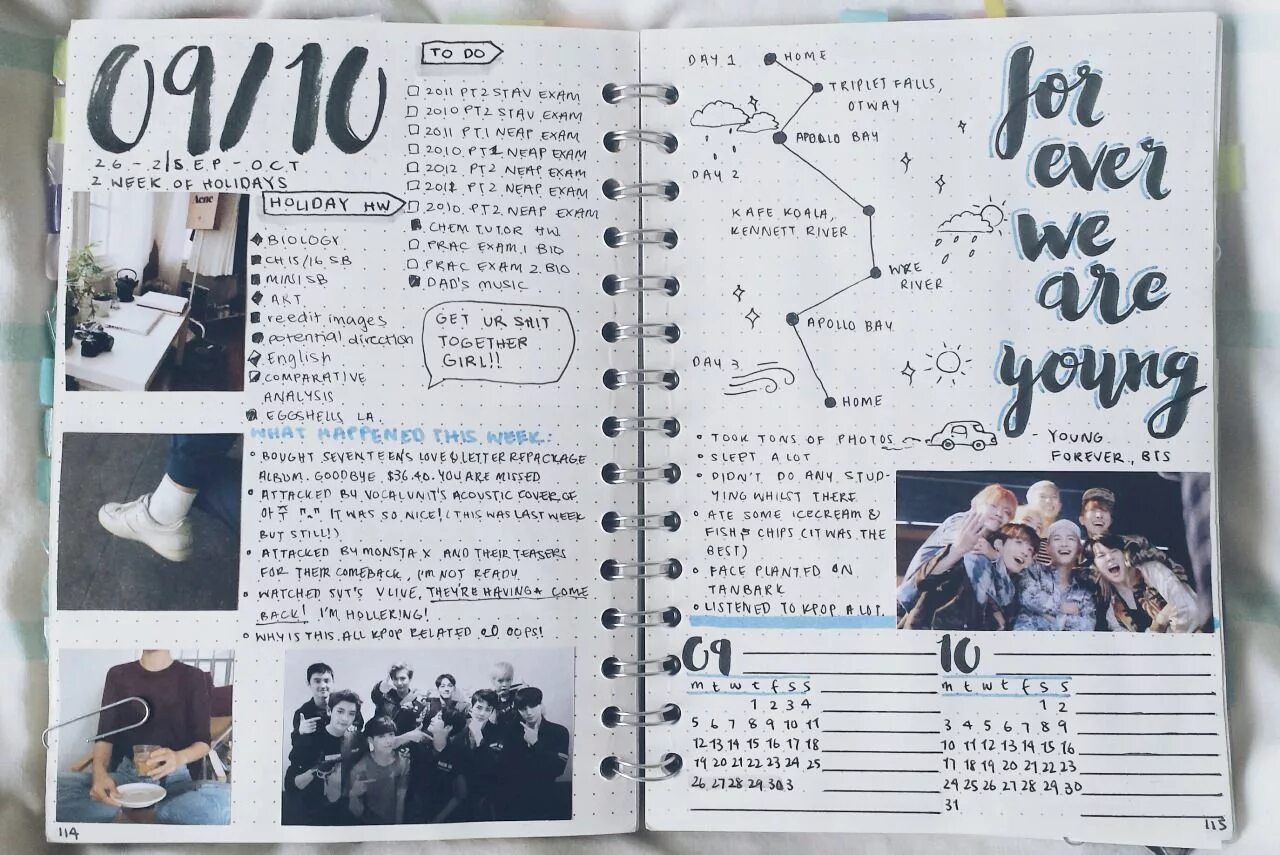 09/10
26 - 2/SEP - OCT
2 WEEK OF HOLIDAYS
TO DO
2011 PT2 STAV EXAM
2010 PT2 STAV EXAM
2011 PT.1 NEAP EXAM
2010 PT1 NEAP EXAM
2012 PT2 NEAP EXAM
2011 PT2 NEAP EXAM
2010 PT2 NEAP EXAM
CHEM TUTOR HW
PRAC EXAM 1 BIO
PRAC EXAM 2 BIO
DAD'S MUSIC
GET UR SHIT
TOGETHER
GIRL!!
Acne
HOLIDAY HW
BIOLOGY
CH15/16 SB
MINI SB
ART
reedit images
potential direction
English
COMPARATIVE
ANALYSIS
EGGSHELLS LA
WHAT HAPPENED THIS WEEK:
BOUGHT SEVENTEEN'S LOVE & LETTER REPACKAGE
ALBUM. GOODBYE $36.40. YOU ARE MISSED
ATTACKED BY VOCAL UNIT'S ACOUSTIC COVER OF
아주 "." IT WAS SO NICE! (THIS WAS LAST WEEK
BUT STILL!)
ATTACKED BY MONSTA X AND THEIR TEASERS
FOR THEIR COMEBACK, I'M NOT READY
WATCHED SVT'S V LIVE, THEY'RE HAVING A COME
BACK! I'M HOLLERING!
WHY IS THIS ALL KPOP RELATED OOPS!
114
DAY 1
HOME
TRIPLET FALLS,
OTWAY
APOLLO BAY
DAY 2
KAFE KOALA,
KENNETT RIVER
WYE
RIVER
APOLLO BAY
DAY 3
HOME
for
ever
we
are
young
- YOUNG
FOREVER, BTS
TOOK TONS OF PHOTOS
SLEPT A LOT
DIDN'T DO ANY STUD-
YING WHILST THERE
ATE SOME ICECREAM &
FISH & CHIPS (IT WAS THE
BEST)
FACE PLANTED ON
TANBARK
LISTENED TO KPOP A LOT.
09
m t w t f s s
1 2 3 4
5 6 7 8 9 10 11
12 13 14 15 16 17 18
19 20 21 22 23 24 25
26 27 28 29 30 3
10
m t w t f s s
1 2
3 4 5 6 7 8 9
10 11 12 13 14 15 16
17 18 19 20 21 22 23
24 25 26 27 28 29 30
31
115